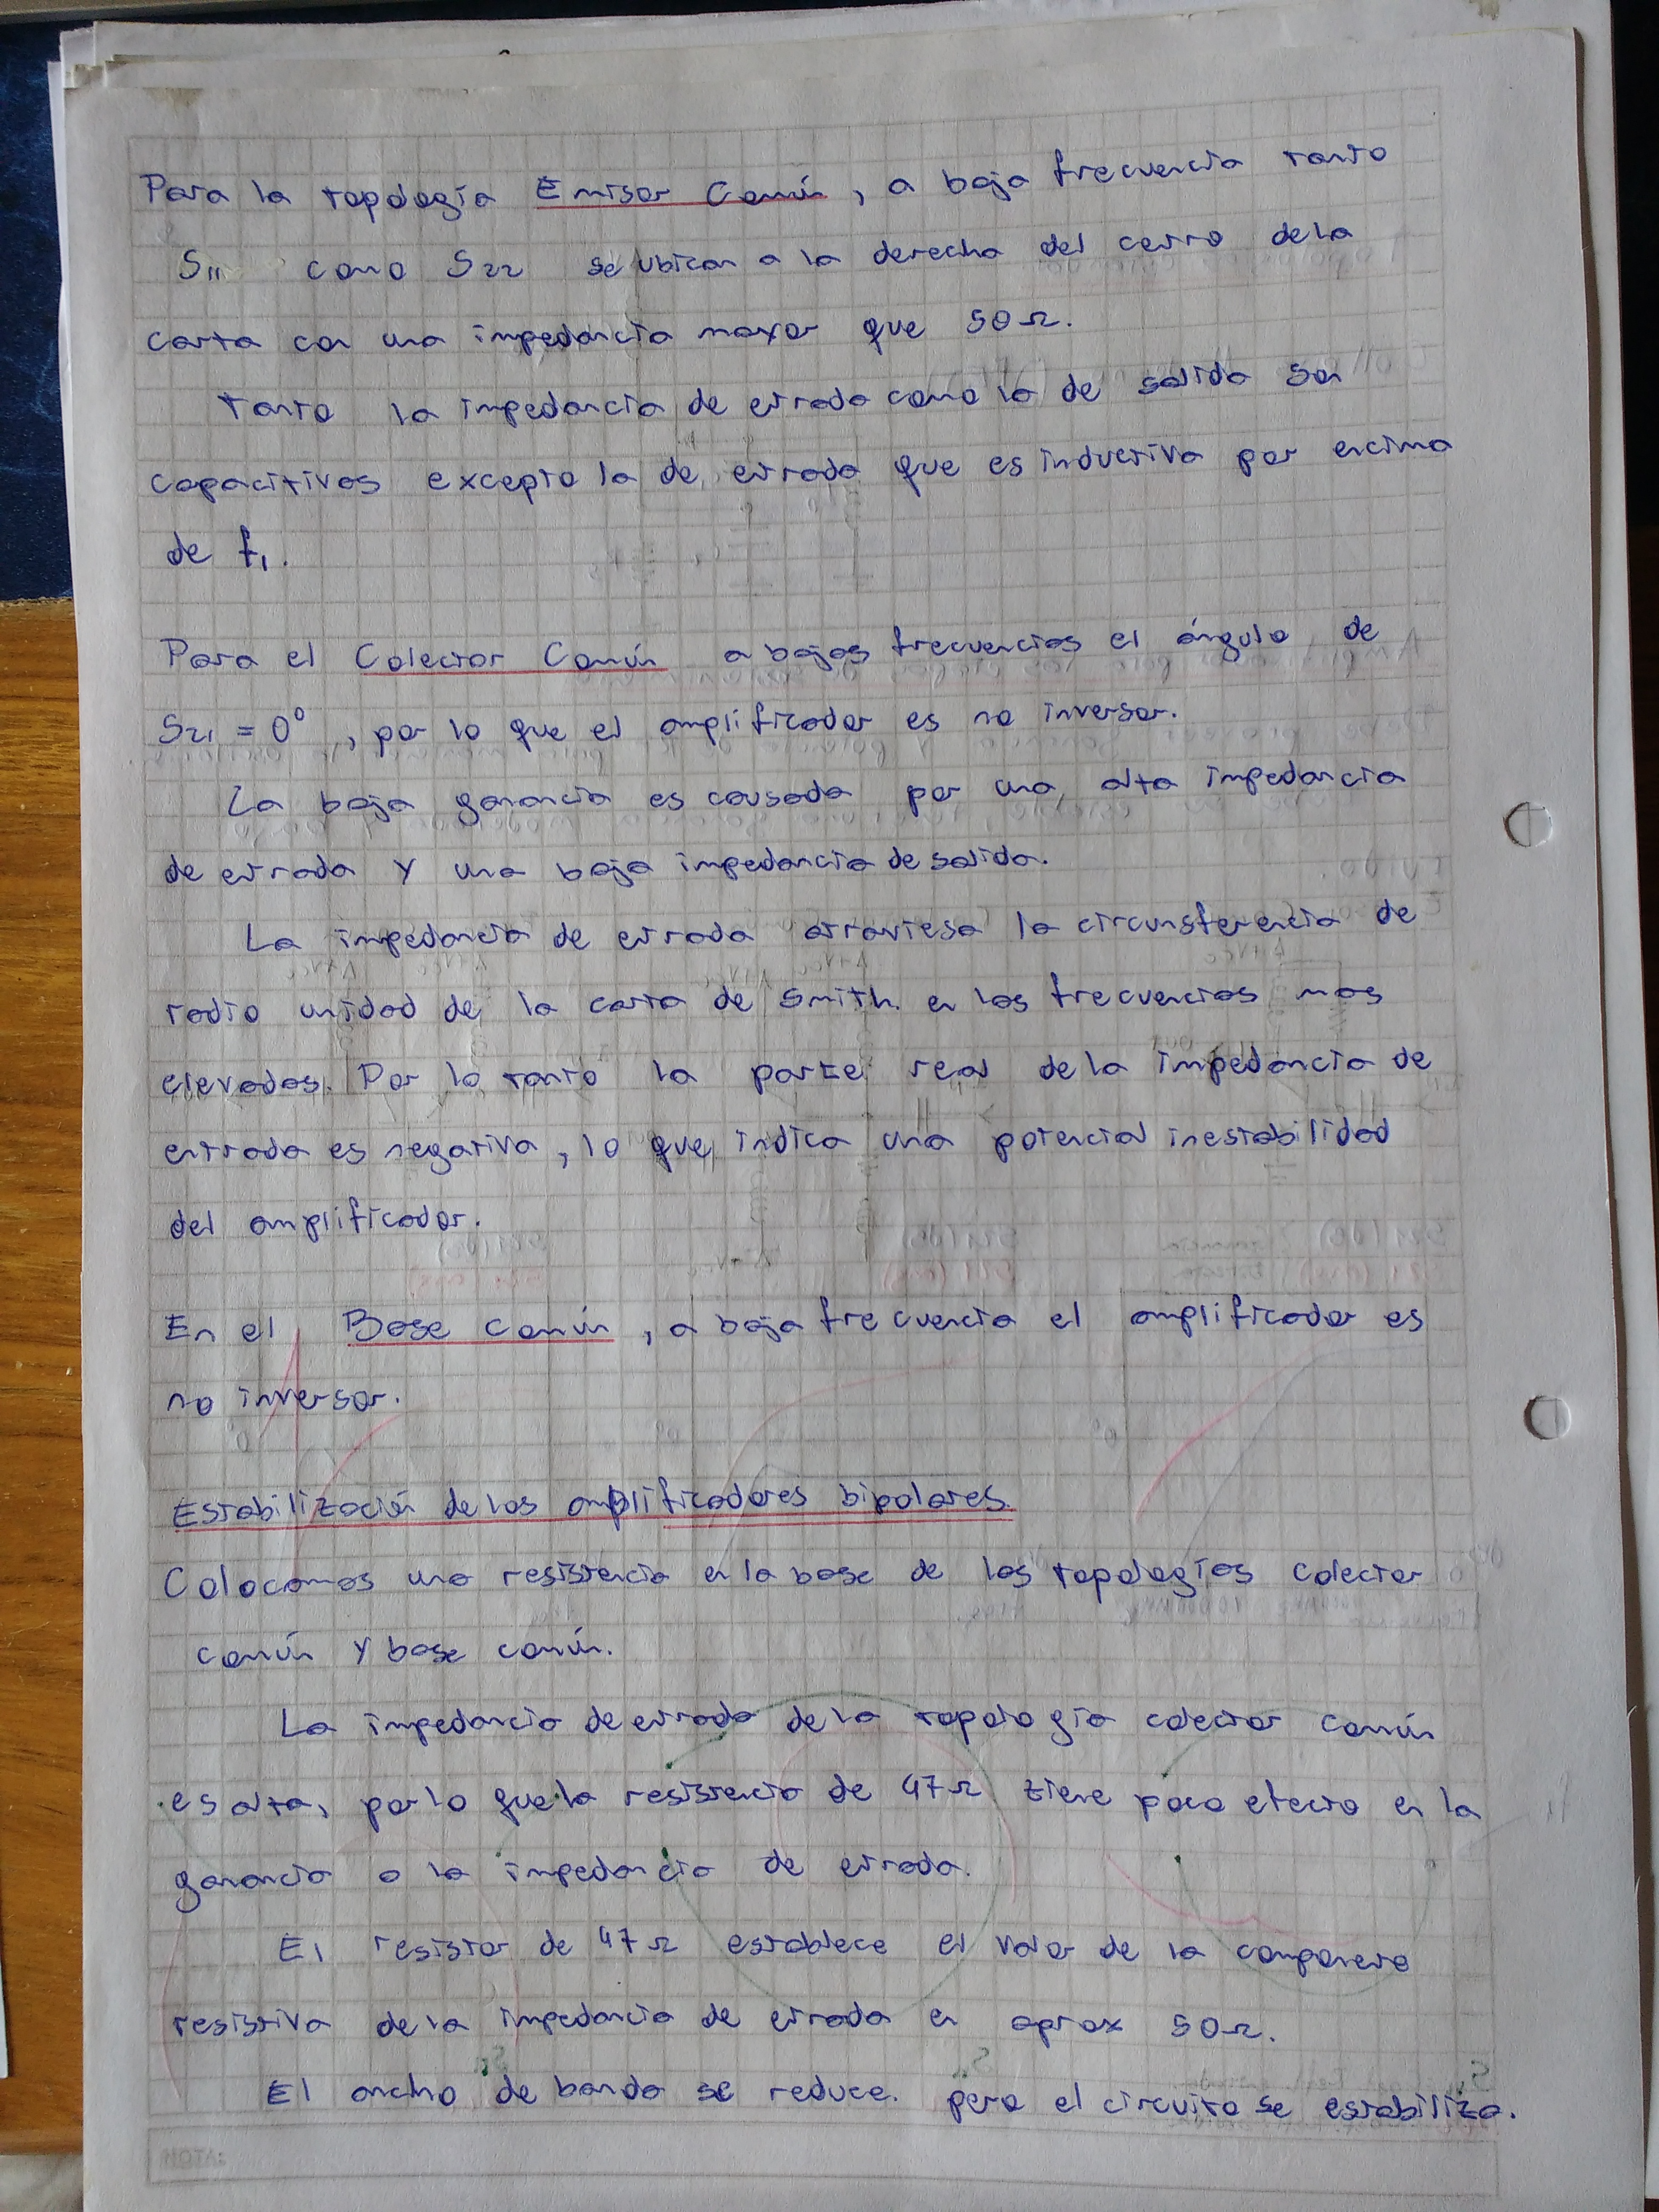 Para la topología Emisor Común, a baja frecuencia tanto
S11 como S22 se ubican a la derecha del centro de la
carta con una impedancia mayor que 50Ω.
Tanto la impedancia de entrada como la de salida son
capacitivas excepto la de entrada que es inductiva por encima
de f1.
Para el Colector Común a bajas frecuencias el ángulo de
S21 = 0°, por lo que el amplificador es no inversor.
La baja ganancia es causada por una alta impedancia
de entrada y una baja impedancia de salida.
La impedancia de entrada atraviesa la circunsferencia de
radio unidad de la carta de Smith. en las frecuencias mas
elevadas. Por lo tanto la parte real de la impedancia de
entrada es negativa, lo que indica una potencial inestabilidad
del amplificador.
En el Base común, a baja frecuencia el amplificador es
no inversor.
Estabilización de los amplificadores bipolares.
Colocamos una resistencia en la base de las topologías colector
común y base común.
La impedancia de entrada de la topología colector común
es alta, por lo que la resistencia de 47Ω tiene poco efecto en la
ganancia o la impedancia de entrada.
El resistor de 47Ω establece el valor de la componente
resistiva de la impedancia de entrada en aprox 50Ω.
El ancho de banda se reduce. pero el circuito se estabiliza.